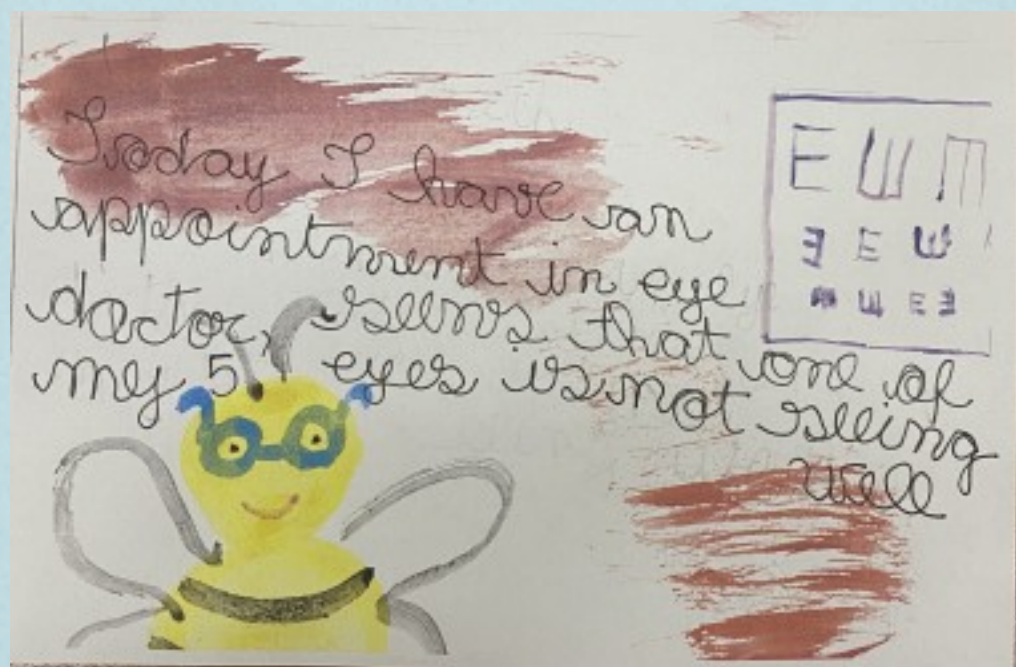 Today I have an
appointment in eye
doctor, seems that one of
my 5 eyes is not seeing
well
E Ш M
Ǝ E Ш
M Ш E Ǝ